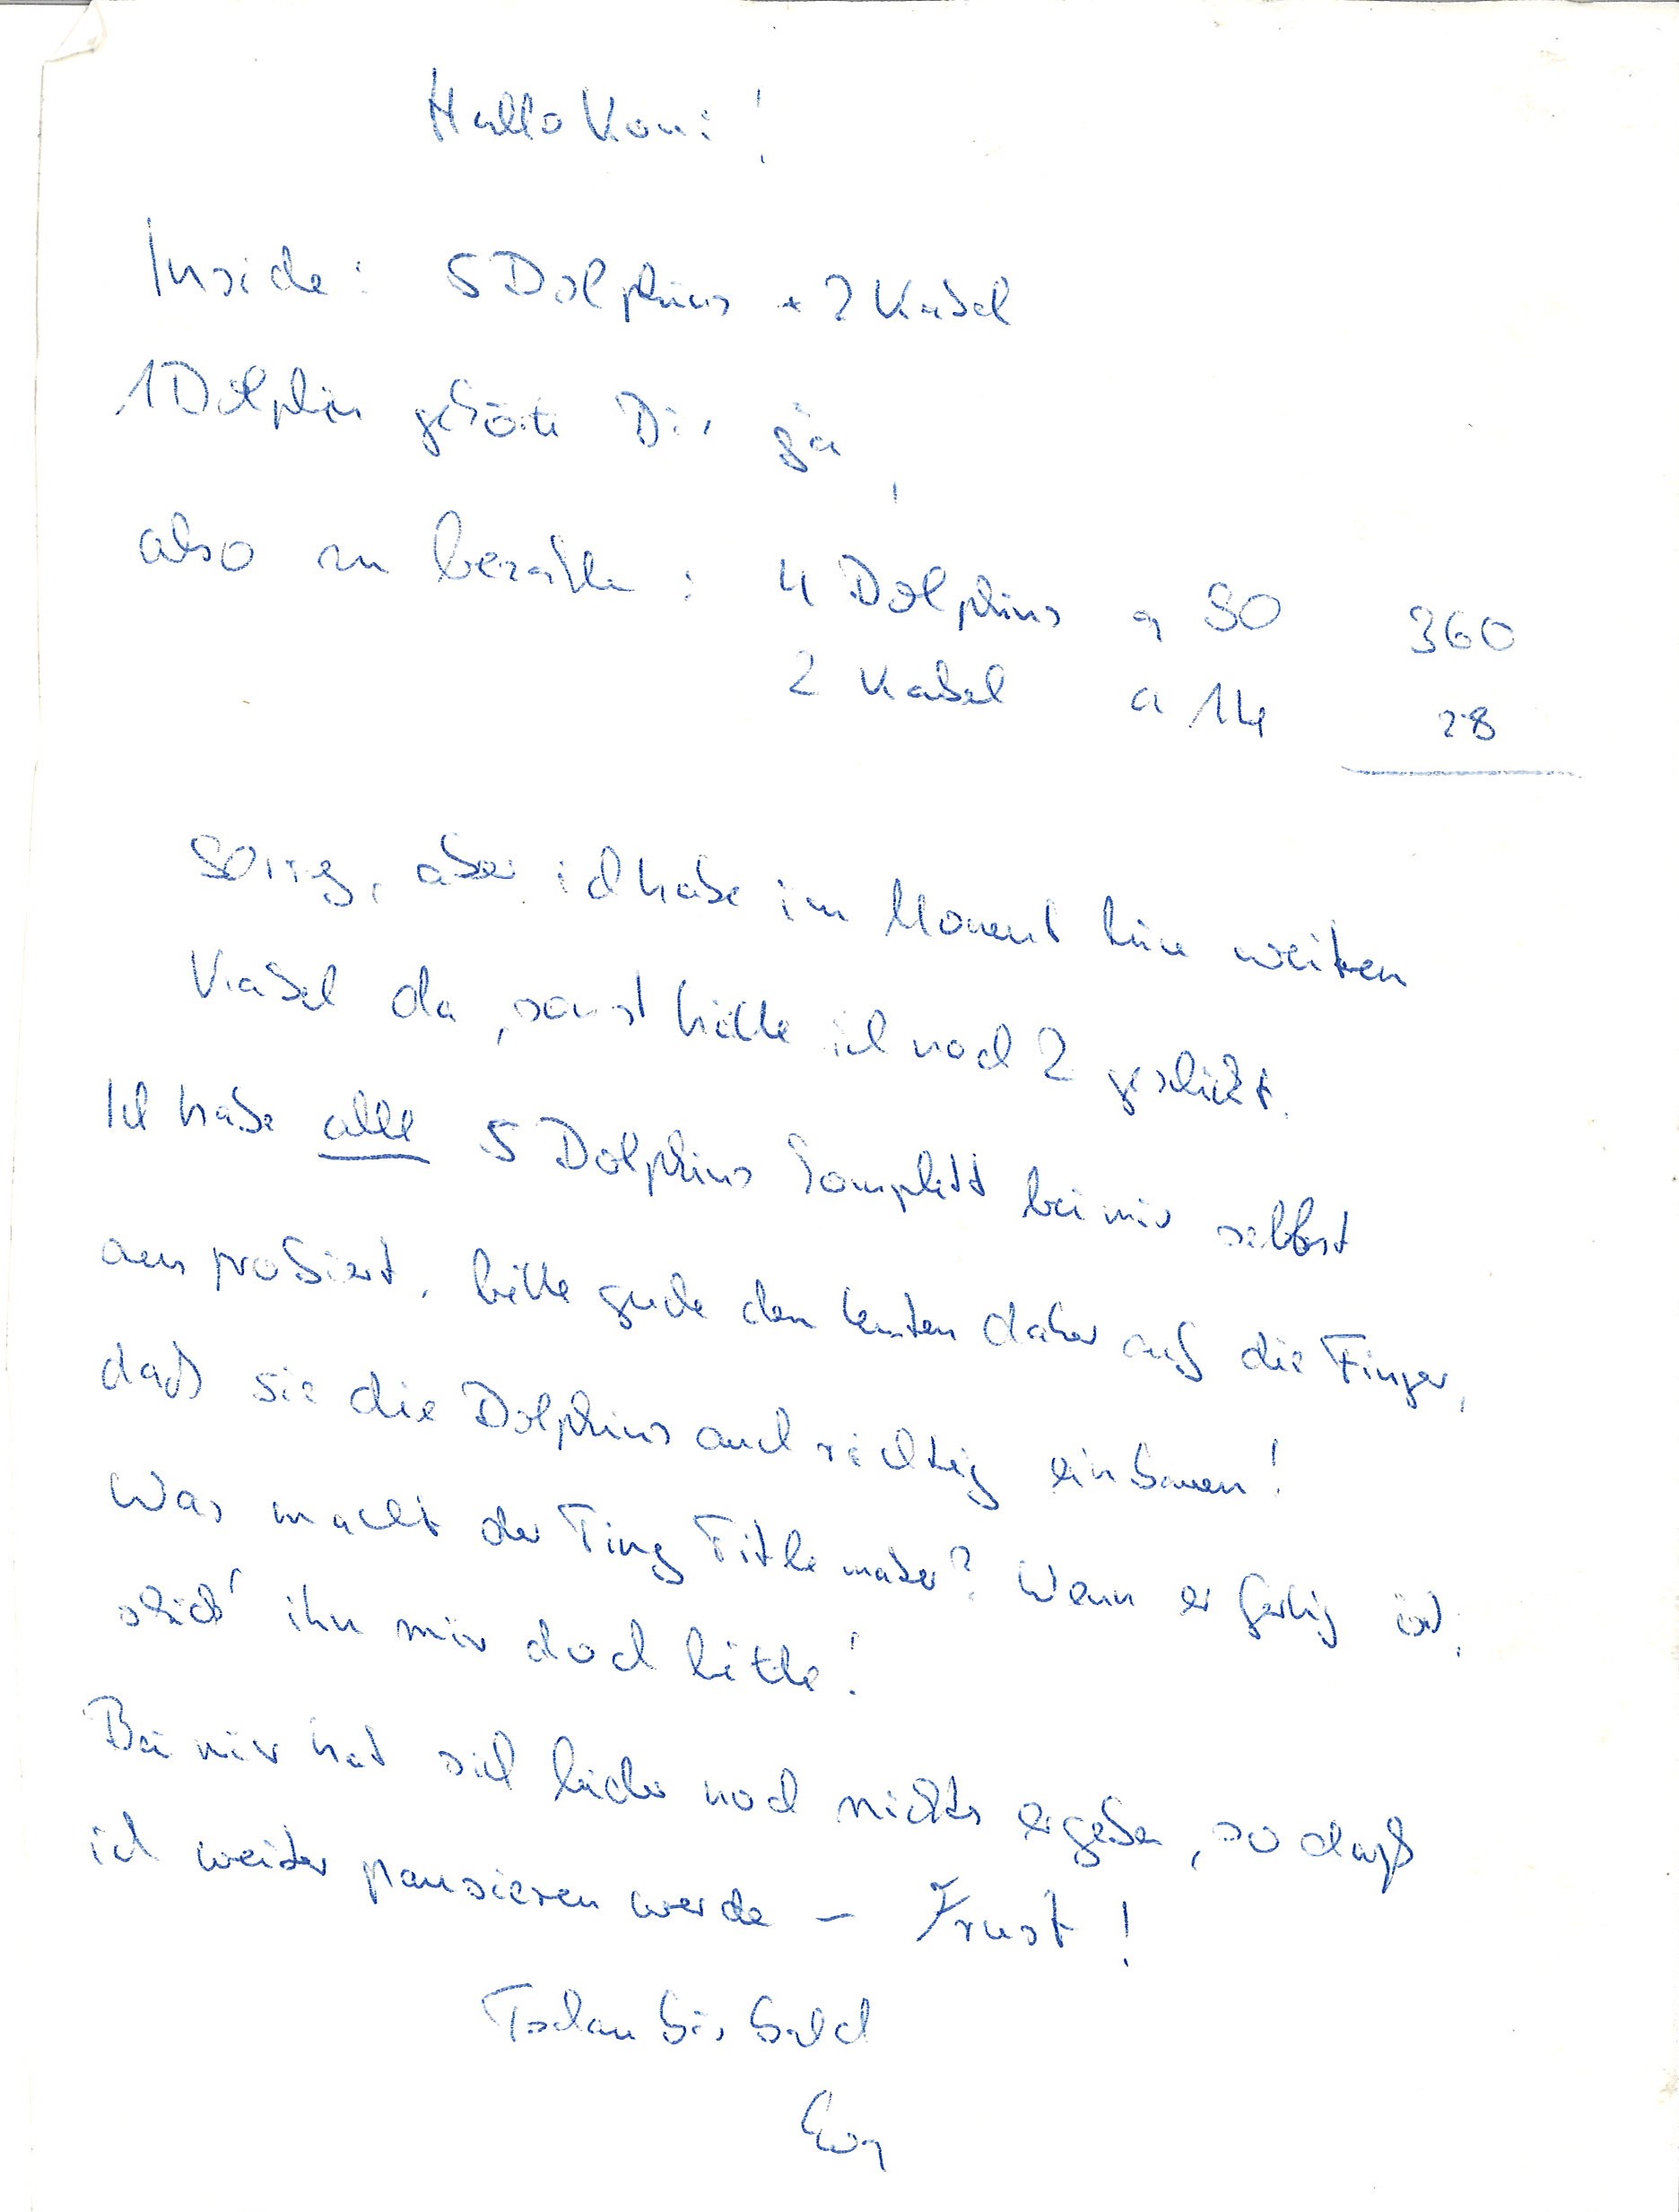 Hallo Koni!
Inside: 5 Dolphins + 2 Kabel
1 Dolphin gehörte Dir ja,
also zu bezahlen: 4 Dolphins a 90 360
2 Kabel a 14 28
Sorry, aber ich habe im Moment keine weiteren
Kabel da, sonst hätte ich noch 2 geschickt.
Ich habe alle 5 Dolphins komplett bei mir selbst
ausprobiert, bitte gucke den Leuten daher auf die Finger,
daß sie die Dolphins auch richtig einbauen!
Was macht der Titlemaker? Wenn er fertig ist,
schick' ihn mir doch bitte!
Bei mir hat sich leider noch nichts ergeben, so daß
ich weiter pausieren werde - Frust!
Tschau bis bald